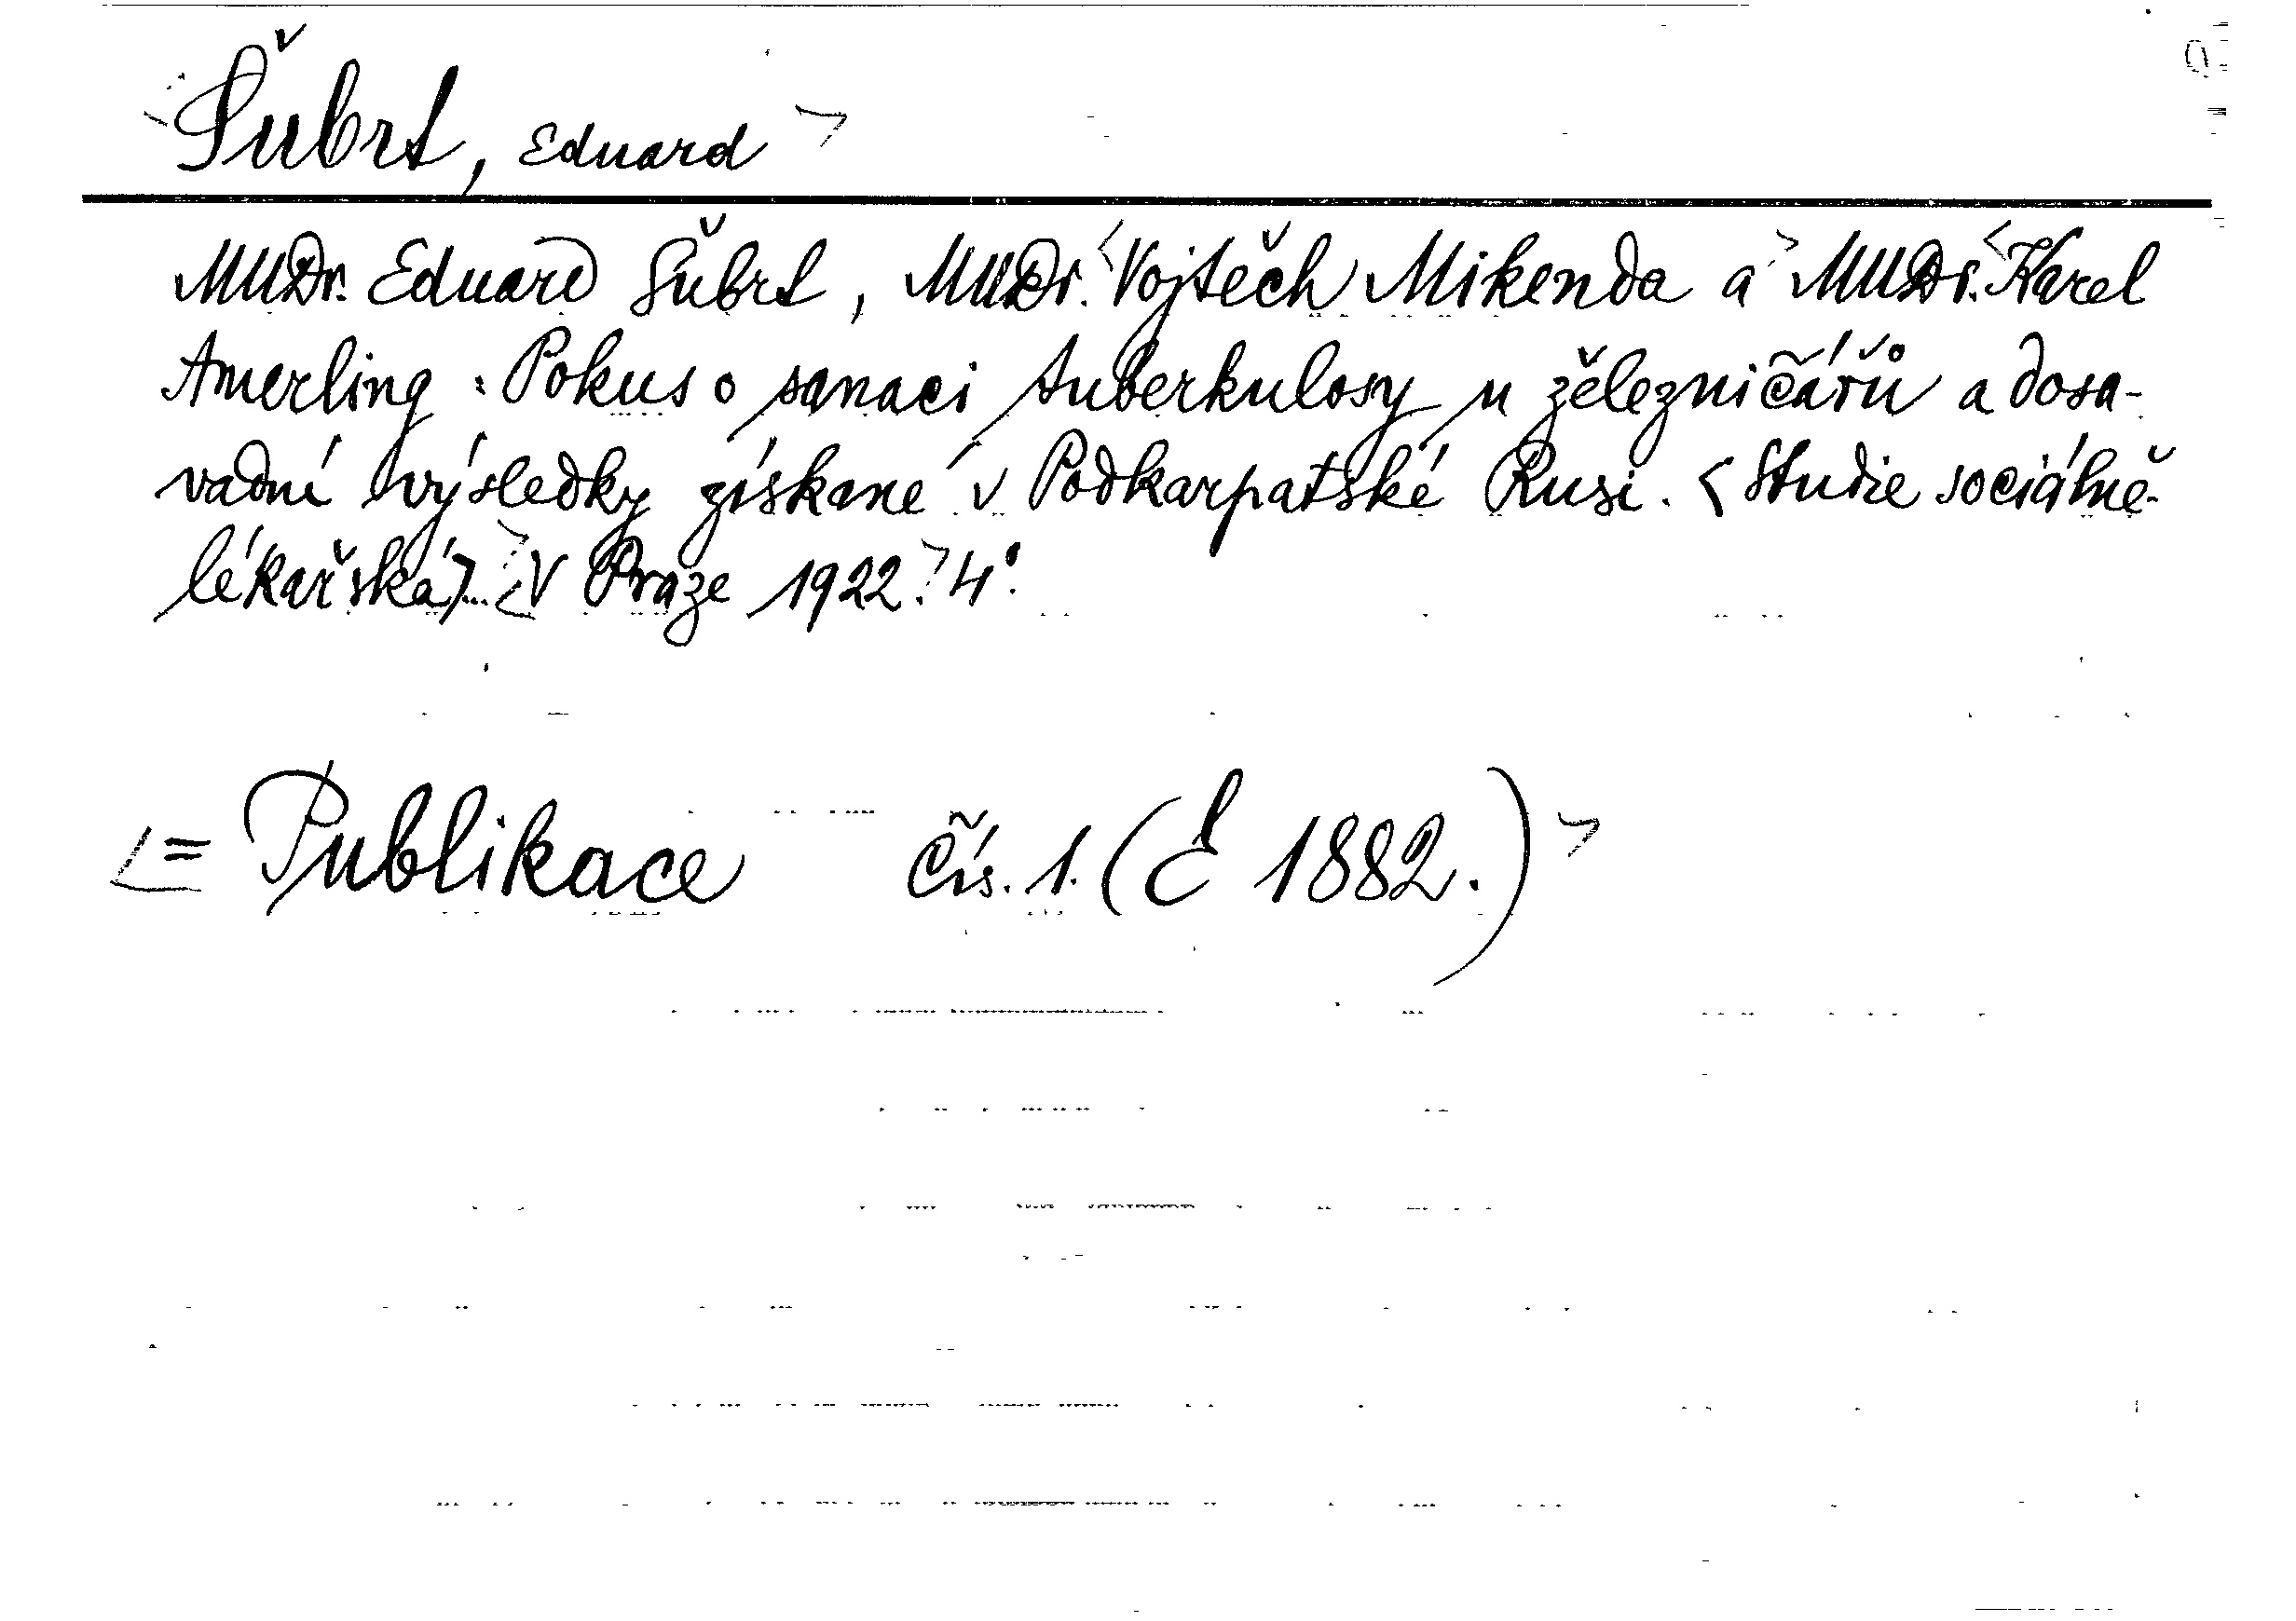 Šubrt, Eduard >
MUDr. Eduard Šubrt, MUDr. <Vojtěch Mikenda a> MUDr. <Karel
Amerling: Pokus o sanaci tuberkulosy u železničářů a dosa-
vadní výsledky získané v Podkarpatské Rusi. <Studie sociálně-
lékařská>. <V Praze 1922.> 4°.
<= Publikace čís. 1. (E 1882.)>